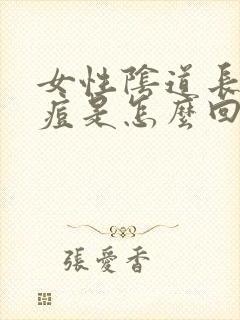 女性陰道長
痘是怎麼回
張愛香